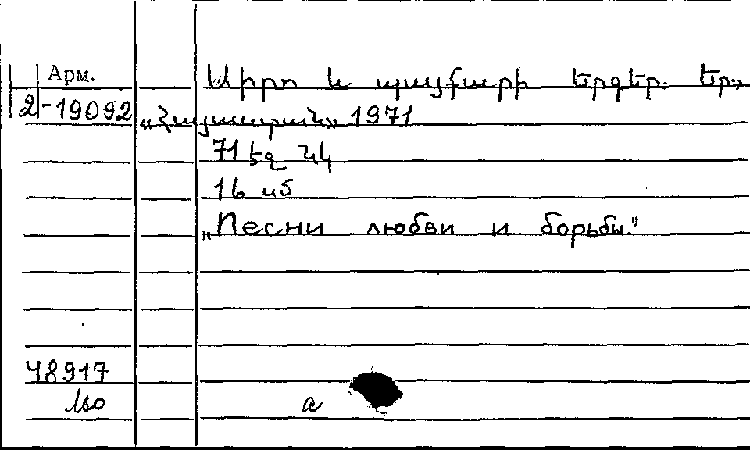 Арм.
Սիրո և պայքարի երգեր. Եր.,
2-19092 «Հայաստան» 1971
71 եզ նկ
16 սմ
„Песни любви и борьбы."
48917
а